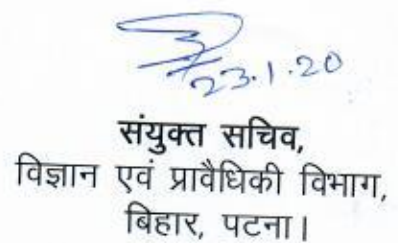 23.1.20
संयुक्त सचिव,
विज्ञान एवं प्रावैधिकी विभाग,
बिहार, पटना।